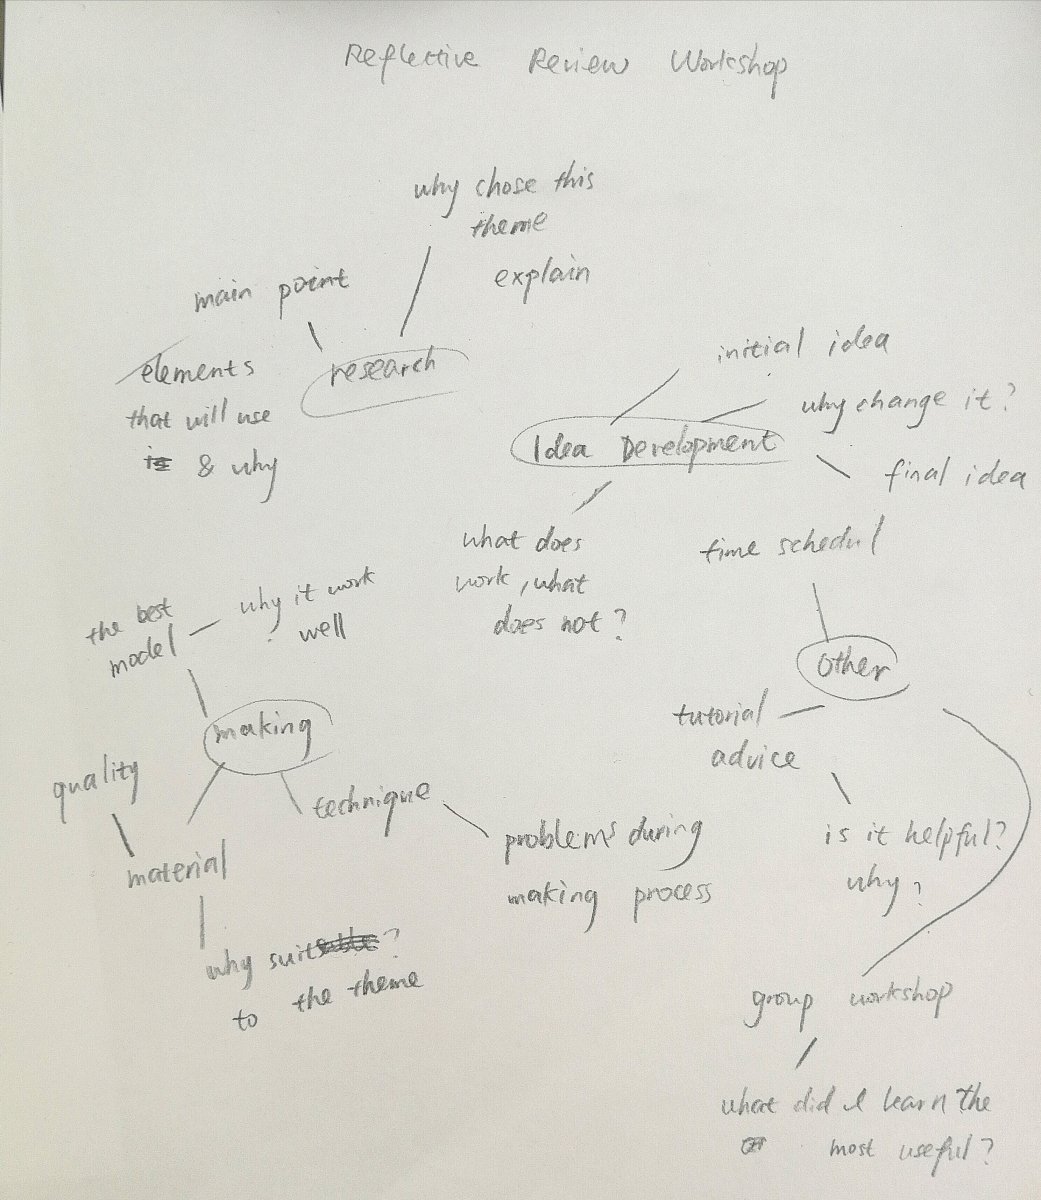 Reflective Review Workshop
why chose this
theme
explain
main point
research
elements
that will use
& why
initial idea
why change it?
Idea Development
final idea
what does
work, what
does not?
time schedul
the best
model
why it work
well
Other
making
tutorial
advice
quality
technique
material
problems during
making process
is it helpful?
why?
why suit ?
to the theme
group workshop
what did I learn the
most useful?